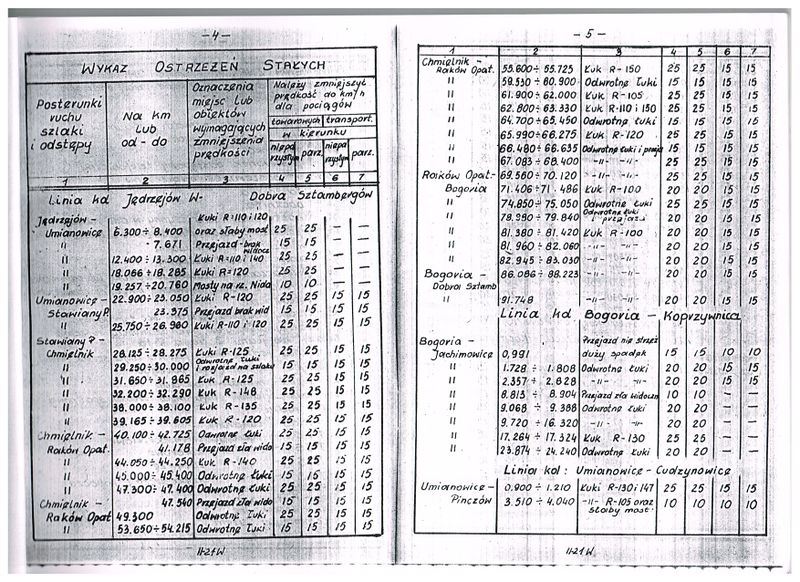 - 4 -
WYKAZ OSTRZEŻEŃ STAŁYCH
Posterunki ruchu szlaki i odstępy
Na km lub od - do
Oznaczenia miejsc lub obiektów wymagających zmniejszenia prędkości
Należy zmniejszyć prędkość do km/h dla pociągów
towarowych transport.
w kierunku
niepa rzystym parz. niepa rzystym parz.
1 2 3 4 5 6 7
Linia kd Jędrzejów W- Dobra Sztambergów
Jędrzejów - Łuki R=110 i 120
Umianowice 6.300÷8.400 oraz słaby most 25 25 — —
11 - 7.671 Przejazd-brak widocz 15 15 — —
11 12.400÷13.300 Łuki R=110 i 140 25 25 — —
11 18.066÷18.285 Łuki R=120 25 25 — —
11 19.257÷20.760 Mosty na rz. Nida 10 10 — —
Umianowice - 22.900÷23.050 Łuki R-120 25 25 15 15
Stawiany P. 23.375 Przejazd brak wid 15 15 15 15
11 25.750÷26.960 Łuki R-110 i 120 25 25 15 15
Stawiany P -
Chmielnik 28.125÷28.275 Łuki R-125 25 25 15 15
11 29.250÷30.000 Odwrotne Łuki i rozjazd na szlaku 15 15 15 15
11 31.650÷31.865 Łuk R-125 25 25 15 15
11 32.200÷32.290 Łuk R-148 25 25 15 15
11 38.000÷38.100 Łuk R-135 25 25 15 15
11 39.165÷39.605 Łuk R-120 25 25 15 15
Chmielnik - 40.100÷42.725 Odwrotne Łuki 25 25 15 15
Raków Opat. 41.178 Przejazd zła wido 15 15 15 15
11 44.050÷44.250 Łuk R-140 25 25 15 15
11 45.000÷45.400 Odwrotne Łuki 15 15 15 15
11 47.300÷47.400 Odwrotne Łuki 25 25 15 15
Chmielnik - 47.540 Przejazd zła wido 15 15 15 15
Raków Opat 49.300 Odwrotne Łuki 15 15 15 15
11 53.650÷54.215 Odwrotne Łuki 15 15 15 15
11-21W
- 5 -
1 2 3 4 5 6 7
Chmielnik -
Raków Opat. 55.600÷55.725 Łuk R-150 25 25 15 15
11 58.530÷60.900 Odwrotne Łuki 15 15 15 15
11 61.900÷62.000 Łuk R-105 25 25 15 15
11 62.800÷63.330 Łuk R-110 i 150 25 25 15 15
11 64.700÷65.450 Odwrotne Łuki 15 15 15 15
11 65.990÷66.275 Łuk R-120 25 25 15 15
11 66.480÷66.635 Odwrotne Łuki i przejazd 15 15 15 15
11 67.083÷68.400 -11- -11- 25 25 15 15
Raków Opat- 69.560÷70.120 -11- -11- 25 25 15 15
Bogoria 71.406÷71.486 Łuk R-100 20 20 15 15
11 74.850÷75.050 Odwrotne Łuki 25 25 15 15
11 78.990÷79.840 Odwrotne Łuki i przejazd 20 20 15 15
11 81.380÷81.420 Łuk R-100 20 20 15 15
11 81.960÷82.060 -11- -11- 20 20 15 15
11 82.945÷83.030 -11- -11- 20 20 15 15
Bogoria - 86.086÷88.223 -11- -11- 20 20 15 15
Dobra Sztamb
11 91.748 -11- -11- 20 20 15 15
Linia kd Bogoria - Koprzywnica
Bogoria - Przejazd nie strzeż
Jachimowice 0,991 duży spadek 15 15 10 10
11 1.728÷1.808 Odwrotne Łuki 20 20 15 15
11 2.357÷2.828 -11- -11- 20 20 15 15
11 8.813÷8.904 Przejazd zła widoczn 10 10 — —
11 9.068÷9.388 Odwrotne Łuki 20 20 — —
11 9.720÷16.320 -11- -11- 20 20 — —
11 17.264÷17.324 Łuk R-130 25 25 — —
11 23.874÷24.240 Odwrotne Łuki 20 20 — —
Linia kol: Umianowice - Cudzynowice
Umianowice - 0.900÷1.210 Łuki R-130 i 147 25 25 15 15
Pinczów 3.510÷4.040 -11- R-105 oraz słaby most 10 10 10 10
11-21W